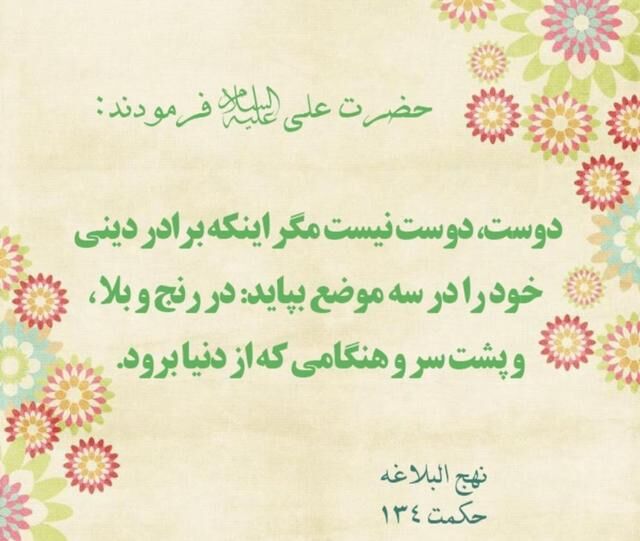 حضرت علی علیه السلام فرمودند:
دوست، دوست نیست مگر اینکه برادر دینی
خود را در سه موضع بپاید: در رنج و بلا،
و پشت سر و هنگامی که از دنیا برود.
نهج البلاغه
حکمت ۱۳۴